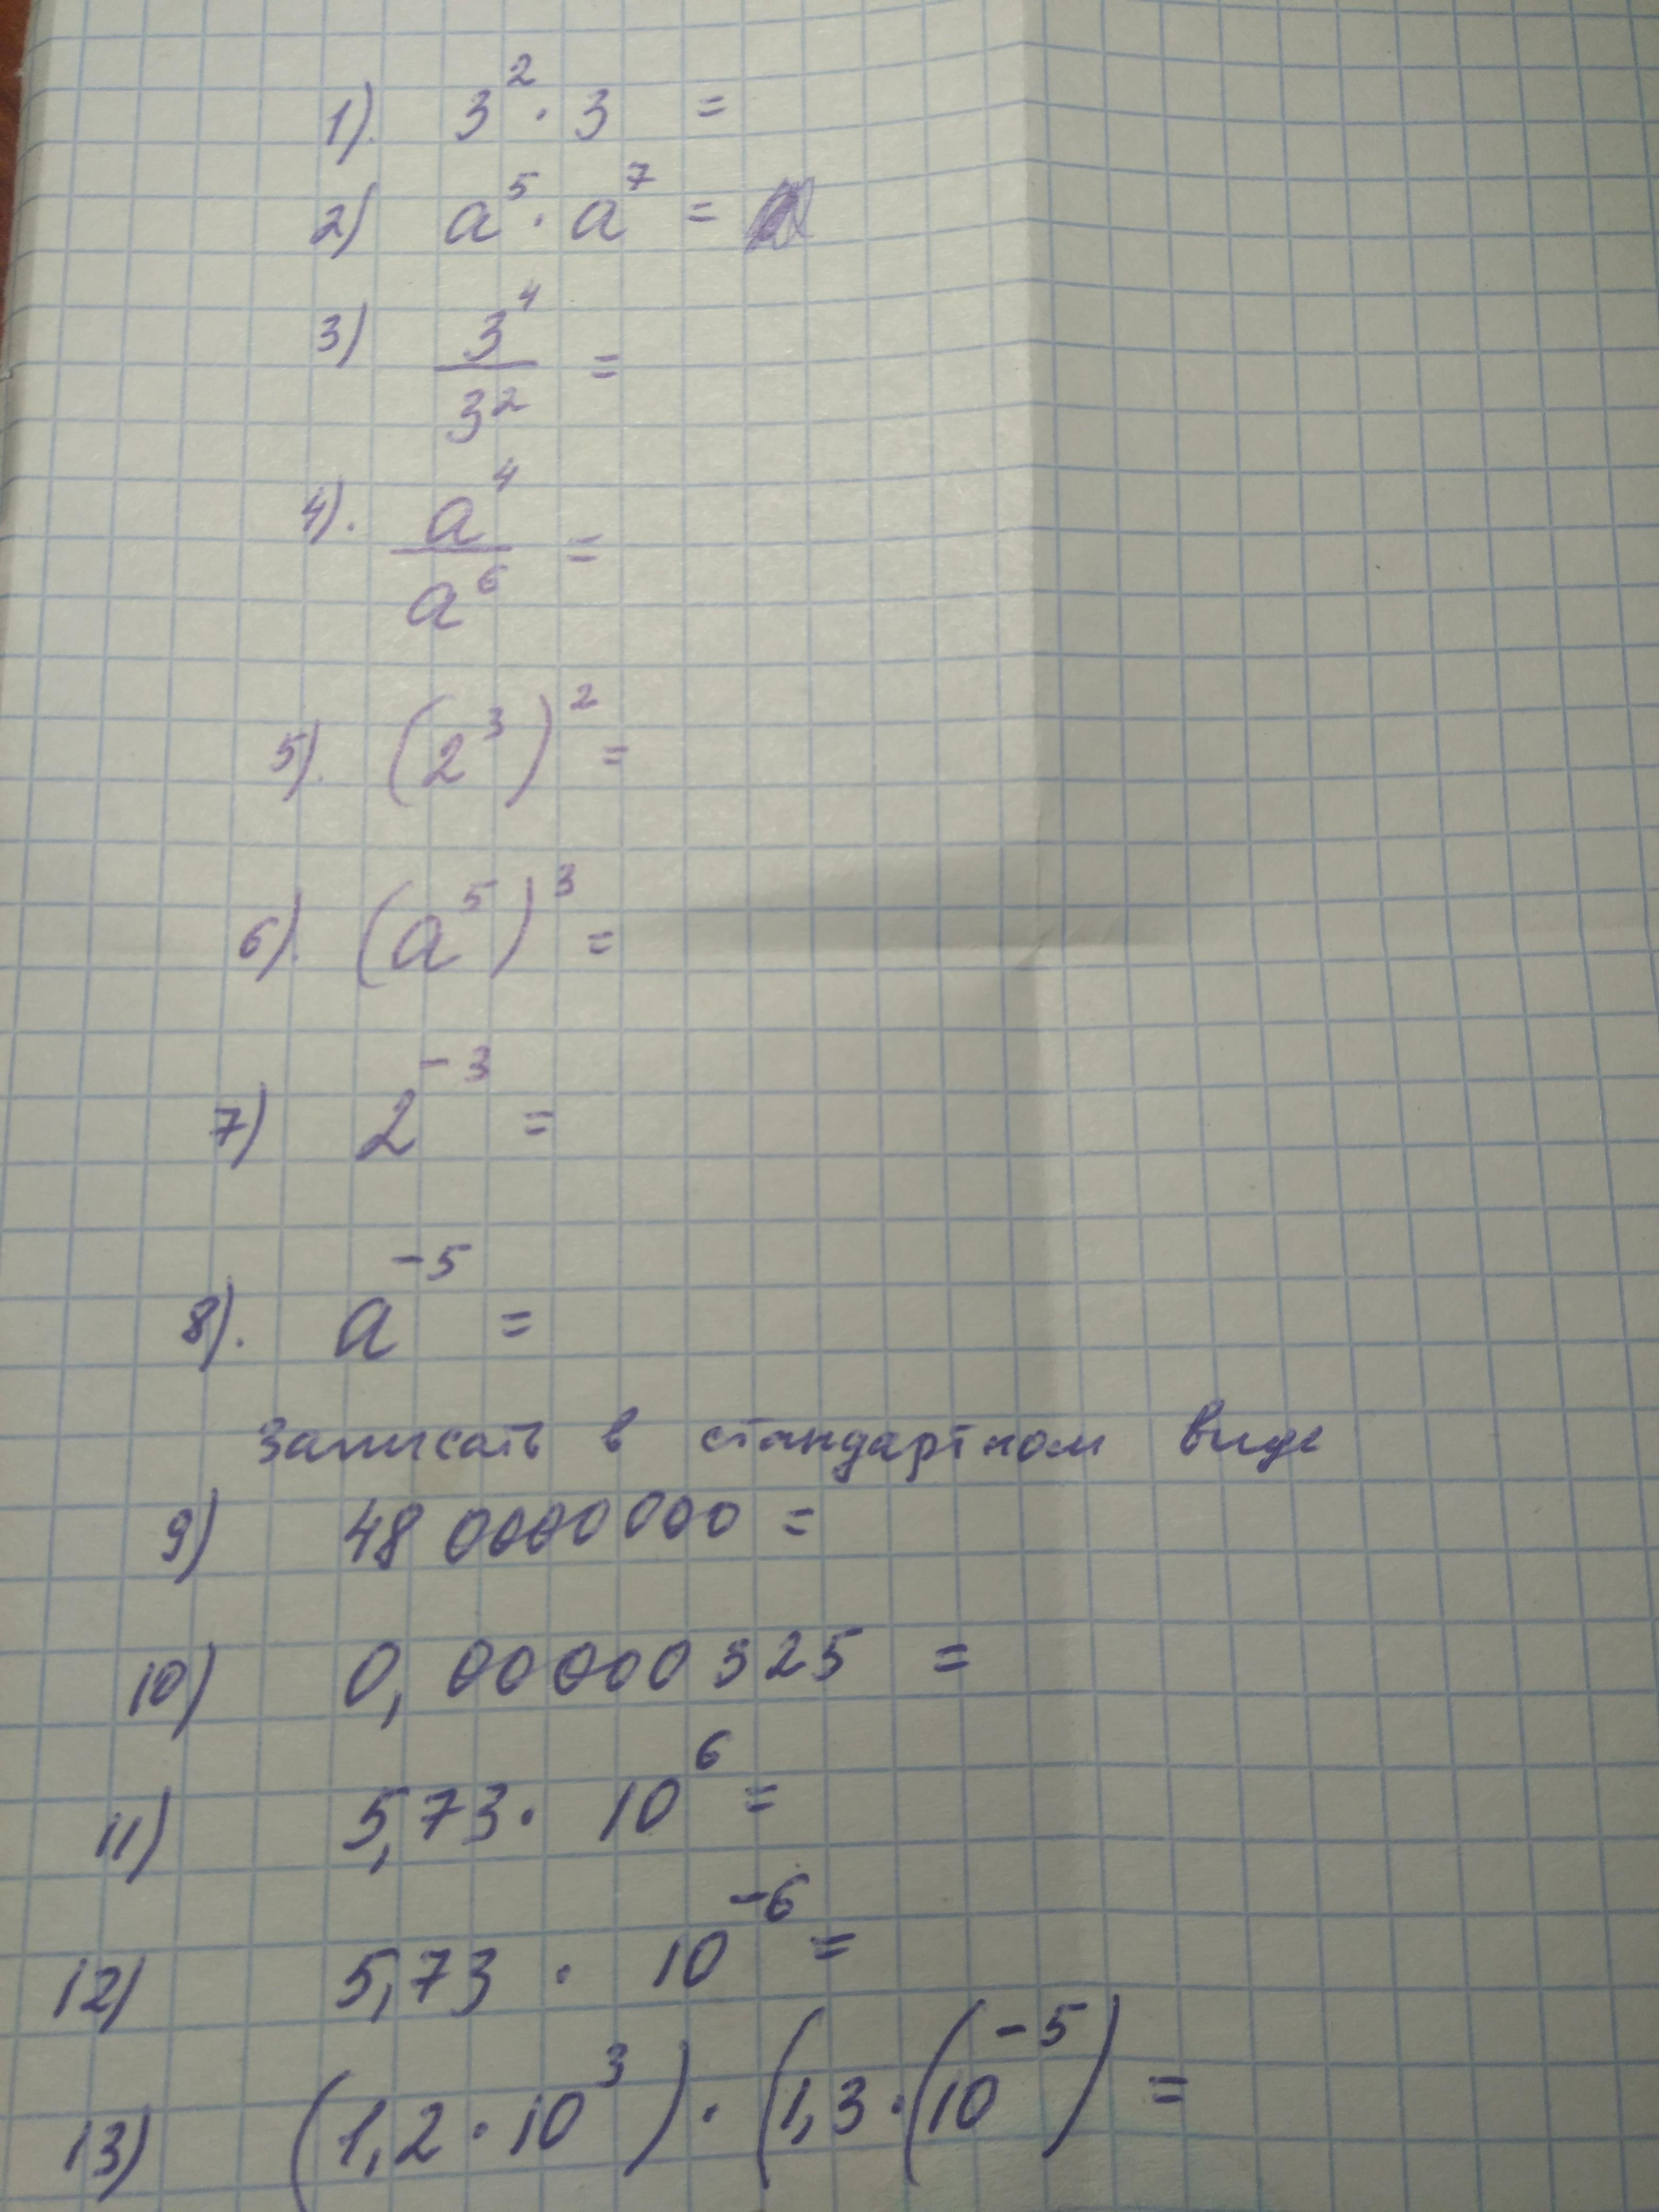 1). 3² · 3 =
2) a⁵ · a⁷ =
3) 3⁴/3² =
4). a⁴/a⁶ =
5). (2³)² =
6). (a⁵)³ =
7) 2⁻³ =
8). a⁻⁵ =
Записать в стандартном виде
9) 48 0000000 =
10) 0,00000525 =
11) 5,73 · 10⁶ =
12) 5,73 · 10⁻⁶ =
13) (1,2 · 10³) · (1,3 · (10⁻⁵) =